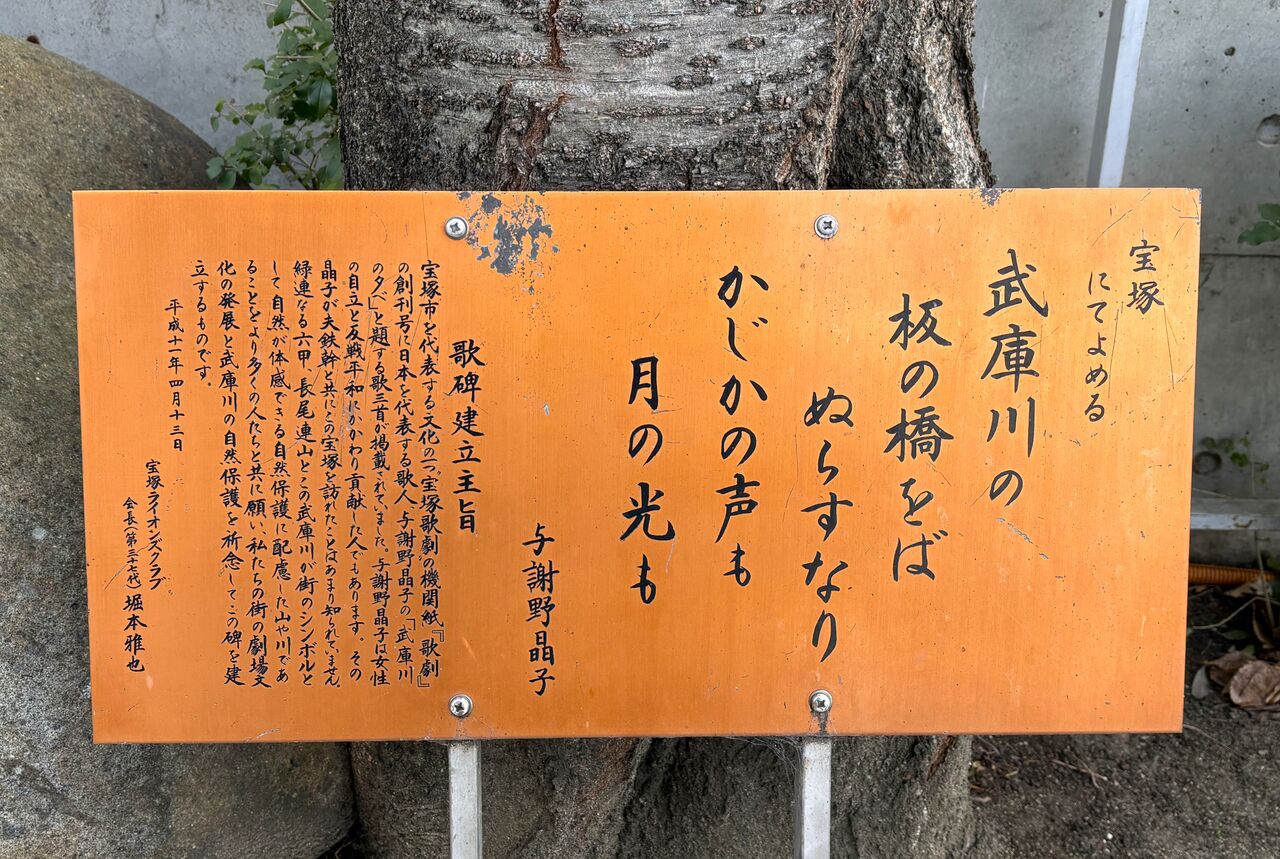 宝塚
にてよめる
武庫川の
板の橋をば
ぬらすなり
かじかの声も
月の光も
与謝野晶子
歌碑建立主旨
宝塚市を代表する文化の一つ宝塚歌劇の機関紙『歌劇』
の創刊号に日本を代表する歌人、与謝野晶子の「武庫川
の夕べ」と題する歌三首が掲載されていました。与謝野晶子は女性
の自立と反戦平和にかかわり貢献した人でもあります。その
晶子が夫鉄幹と共にこの宝塚を訪れたことはあまり知られていません。
緑連なる六甲、長尾連山とこの武庫川が街のシンボルと
して自然が体感できる自然保護に配慮した山や川であ
ることをより多くの人たちと共に願い、私たちの街の劇場文
化の発展と武庫川の自然保護を祈念してこの碑を建
立するものです。
平成十一年四月十三日
宝塚ライオンズクラブ
会長(第三十七代)堀本雅也